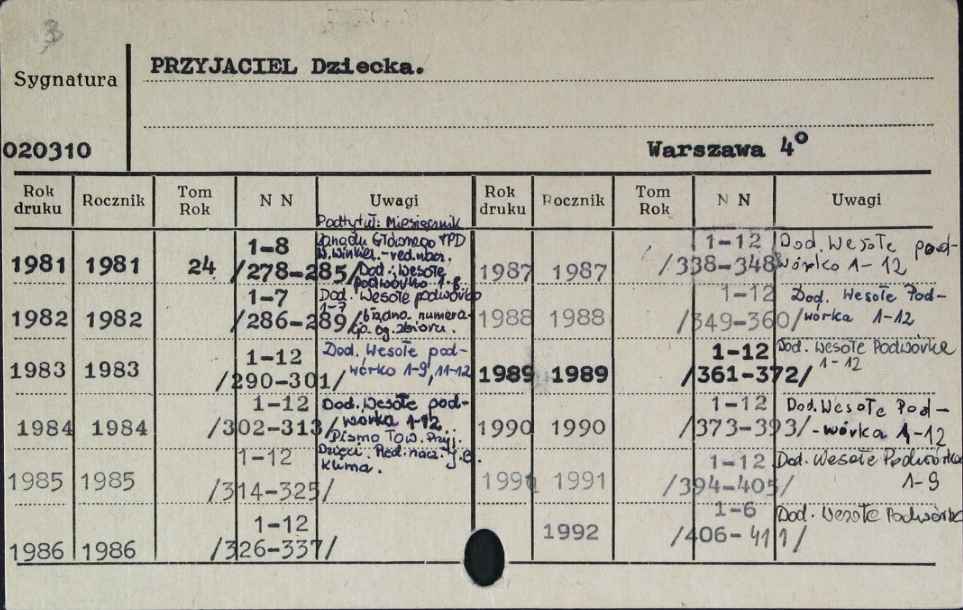 3
PRZYJACIEL Dziecka.
Sygnatura
020310
Warszawa 4°
Rok druku Rocznik Tom Rok N N Uwagi Rok druku Rocznik Tom Rok N N Uwagi
Podtytuł: Miesięcznik
Zarządu Głównego TPD
W. Winkler.-red.nacz.
1981 1981 24 1-8 /278-285/ Dod.: Wesołe
podwórko 1-8
1982 1982 1-7 /286-289/ Dod. Wesołe podwórko
1-7
/błędna numera-
cja og. zbioru.
1983 1983 1-12 /290-301/ Dod. Wesołe pod-
wórko 1-9, 11-12
1984 1984 1-12 /302-313/ Dod. Wesołe pod-
wórka 1-12.
Pismo Tow. Przyj.
Dzieci. Red. nacz. J.B.
Kuma.
1985 1985 1-12 /314-325/
1986 1986 1-12 /326-337/
1987 1987 1-12 /338-348/ Dod. Wesołe pod-
wórko 1-12
1988 1988 1-12 /349-360/ Dod. Wesołe Pod-
wórka 1-12
1989 1989 1-12 /361-372/ Dod. Wesołe Podwórka
1-12
1990 1990 1-12 /373-393/ Dod. Wesołe Pod-
-wórka 1-12
1991 1991 1-12 /394-405/ Dod. Wesołe Podwórko
1-9
1992 1-6 /406-411/ Dod. Wesołe Podwórko